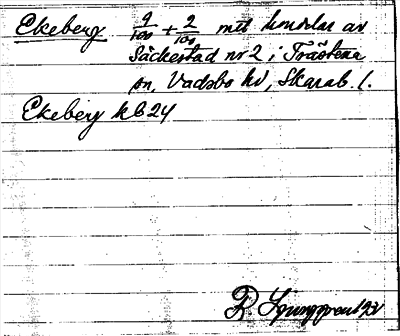 Ekeberg 9/100 + 2/100 mtl hemdelar av
Säckestad nr 2 i Trästena
sn, Vadsbo hd, Skarab. l.
Ekeberg kb 24
R. Ljunggren 1931